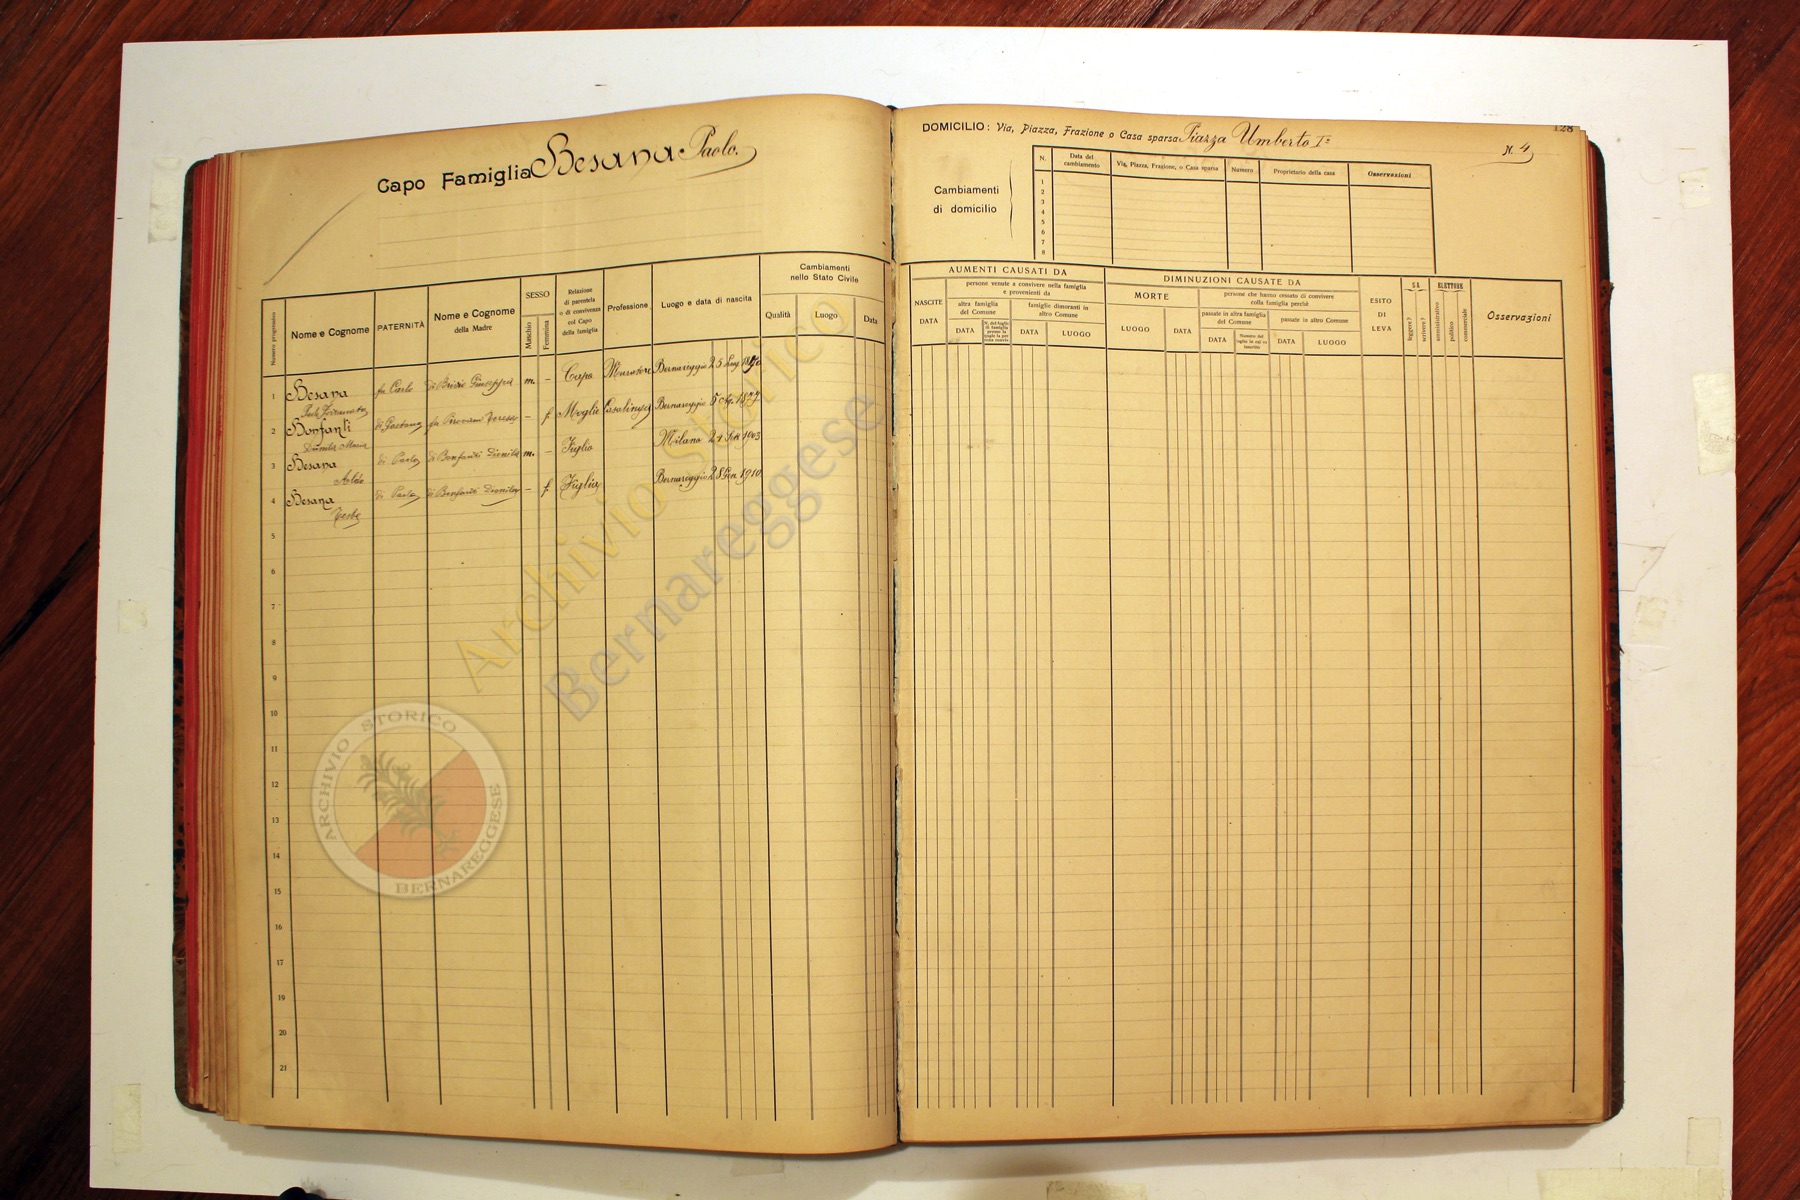 Capo Famiglia Besana Paolo.
Numero progressivo
Nome e Cognome
PATERNITÀ
Nome e Cognome
della Madre
SESSO
Maschio
Femmina
Relazione
di parentela
o di convivenza
col Capo
della famiglia
Professione
Luogo e data di nascita
Cambiamenti
nello Stato Civile
Qualità
Luogo
Data
1 Besana fu Carlo di Giuseppa m. – Capo Muratore Bernareggio 25
2 Bonfanti di Gaetano fu Pirovano Teresa – f. Moglie Casalinga Bernareggio 5 1877
Maria
3 Besana di Paolo di Bonfanti Dionilla m. – Figlio Milano 24 1903
Aldo
4 Besana di Paolo di Bonfanti Dionilla – f. Figlia Bernareggio 28 Gen. 1910
5
6
7
8
9
10
11
12
13
14
15
16
17
18
19
20
21
Archivio Storico
Bernareggese
ARCHIVIO STORICO
BERNAREGGESE
128
DOMICILIO: Via, Piazza, Frazione o Casa sparsa Piazza Umberto I°
N. 4
Cambiamenti
di domicilio
N.
Data del
cambiamento
Via, Piazza, Frazione, o Casa sparsa
Numero
Proprietario della casa
Osservazioni
1
2
3
4
5
6
7
8
AUMENTI CAUSATI DA
NASCITE
DATA
persone venute a convivere nella famiglia
e provenienti da
altra famiglia
del Comune
DATA
famiglie dimoranti in
altro Comune
DATA
LUOGO
DIMINUZIONI CAUSATE DA
MORTE
LUOGO
DATA
persone che hanno cessato di convivere
colla famiglia perchè
passate in altra famiglia
del Comune
DATA
passate in altro Comune
DATA
LUOGO
ESITO
DI
LEVA
SA
leggere?
scrivere?
ELETTORE
amministrativo
politico
commerciale
Osservazioni